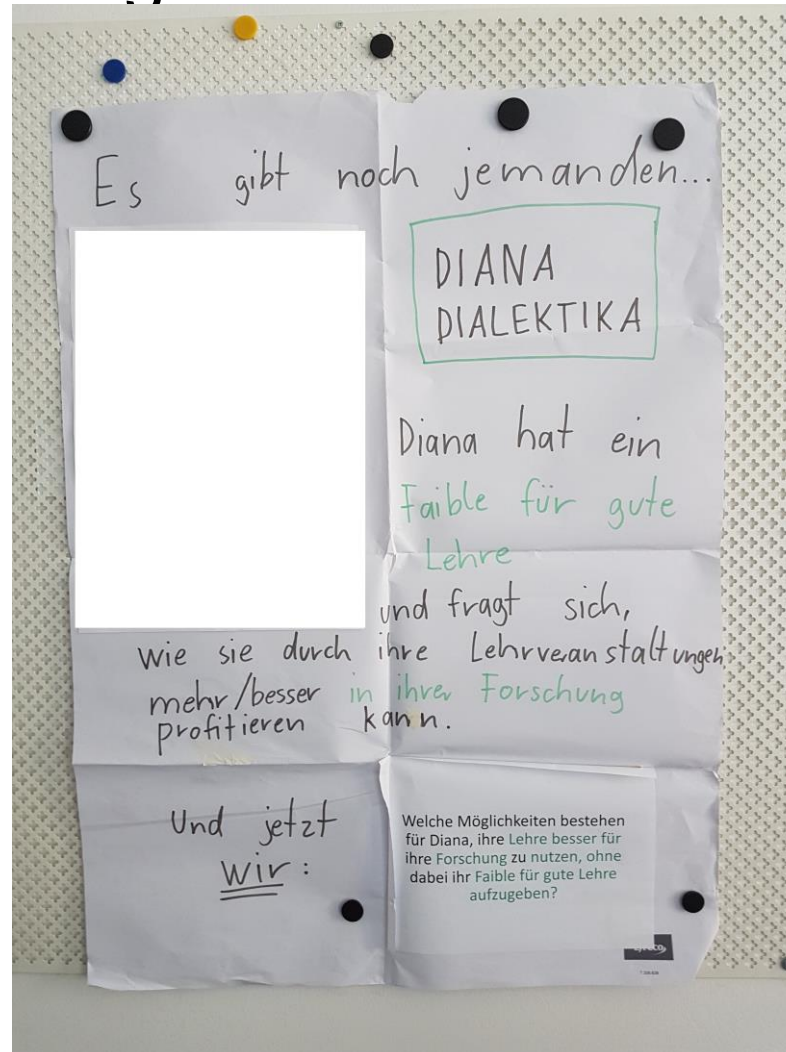 Es gibt noch jemanden...
DIANA
DIALEKTIKA
Diana hat ein
Faible für gute
Lehre
und fragt sich,
wie sie durch ihre Lehrveranstaltungen
mehr/besser in ihrer Forschung
profitieren kann.
Und jetzt
wir:
Welche Möglichkeiten bestehen
für Diana, ihre Lehre besser für
ihre Forschung zu nutzen, ohne
dabei ihr Faible für gute Lehre
aufzugeben?